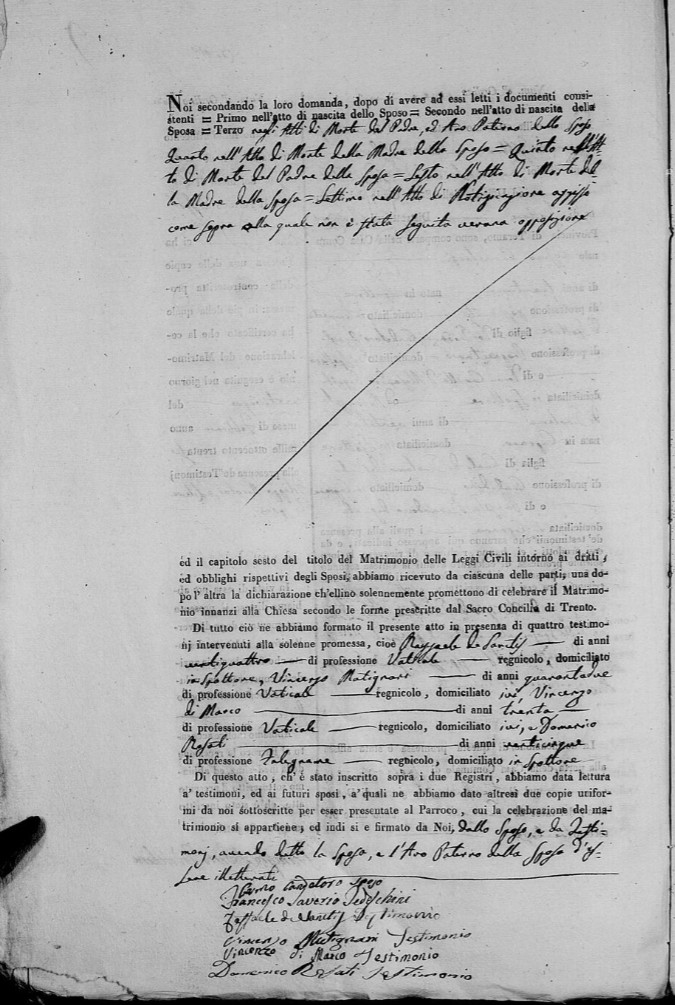 Noi secondando la loro domanda, dopo di avere ad essi letti i documenti consi-
stenti = Primo nell'atto di nascita dello Sposo = Secondo nell'atto di nascita della
Sposa = Terzo negli Atti di Morte del Padre, ed Avo Paterno dello Sposo
Quarto nell'Atto di Morte della Madre dello Sposo = Quinto nell'At-
to di Morte del Padre della Sposa = Sesto nell'Atto di Morte del
la Madre della Sposa = Settimo nell'Atto di Notificazione affissa
come sopra alla quale non è stata seguita veruna opposizione
ed il capitolo sesto del titolo del Matrimonio delle Leggi Civili intorno ai dritti,
ed obblighi rispettivi degli Sposi, abbiamo ricevuto da ciascuna delle parti, una do-
po l' altra la dichiarazione ch'ellino solennemente promettono di celebrare il Matrimo-
nio innanzi alla Chiesa secondo le forme prescritte dal Sacro Concilio di Trento.
Di tutto ciò ne abbiamo formato il presente atto in presenza di quattro testimo-
nj intervenuti alla solenne promessa, cioè Raffaele de Santis di anni
ventiquattro di professione Vaticale regnicolo, domiciliato
in Spoltore, Vincenzo Mutignani di anni quarantadue
di professione Vaticale regnicolo, domiciliato ivi, Vincenzo
di Marco di anni trenta
di professione Vaticale regnicolo, domiciliato ivi, e Domenico
Rosati di anni venticinque
di professione Falegname regnicolo, domiciliato in Spoltore
Di questo atto, ch' è stato inscritto sopra i due Registri, abbiamo data lettura
a' testimoni, ed ai futuri sposi, a' quali ne abbiamo dato altresì due copie unifor-
mi da noi sottoscritte per esser presentate al Parroco, cui la celebrazione del ma-
trimonio si appartiene, ed indi si è firmato da Noi, dallo Sposo, e da Testi-
monj, avendo detto la Sposa, e l'Avo Paterno della Sposa d'es-
sere illetterati
sposo
Francesco Saverio Tedeschini
Raffaele de Santis Testimonio
Vincenzo Mutignani Testimonio
Vincenzo di Marco Testimonio
Domenico Rosati Testimonio